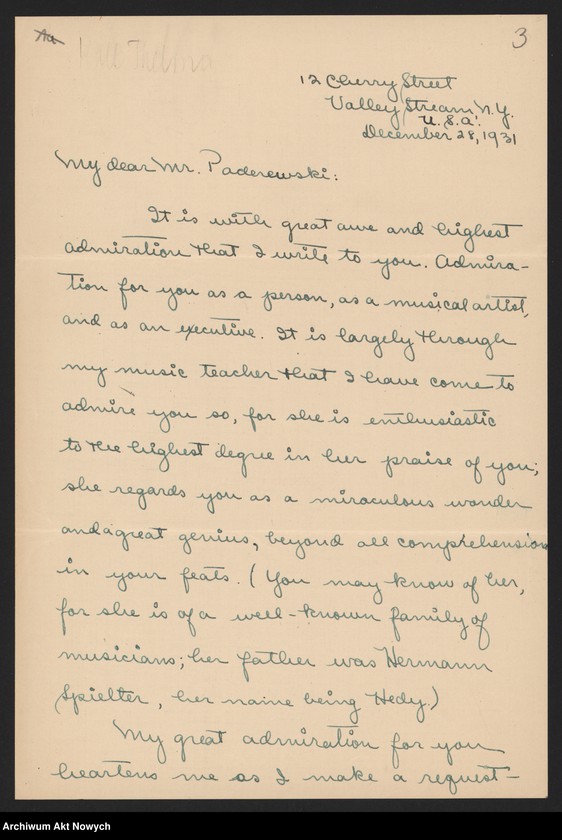 3
12 Cherry Street
Valley Stream, N.Y.
U.S.A.
December 28, 1931
My dear Mr. Paderewski:
It is with great awe and highest
admiration that I write to you. Admira-
tion for you as a person, as a musical artist,
and as an executive. It is largely through
my music teacher that I have come to
admire you so, for she is enthusiastic
to the highest degree in her praise of you;
she regards you as a miraculous wonder
and a great genius, beyond all comprehension
in your feats. (You may know of her,
for she is of a well-known family of
musicians; her father was Hermann
Spielter, her name being Hedy.)
My great admiration for you
heartens me as I make a request-
Archiwum Akt Nowych